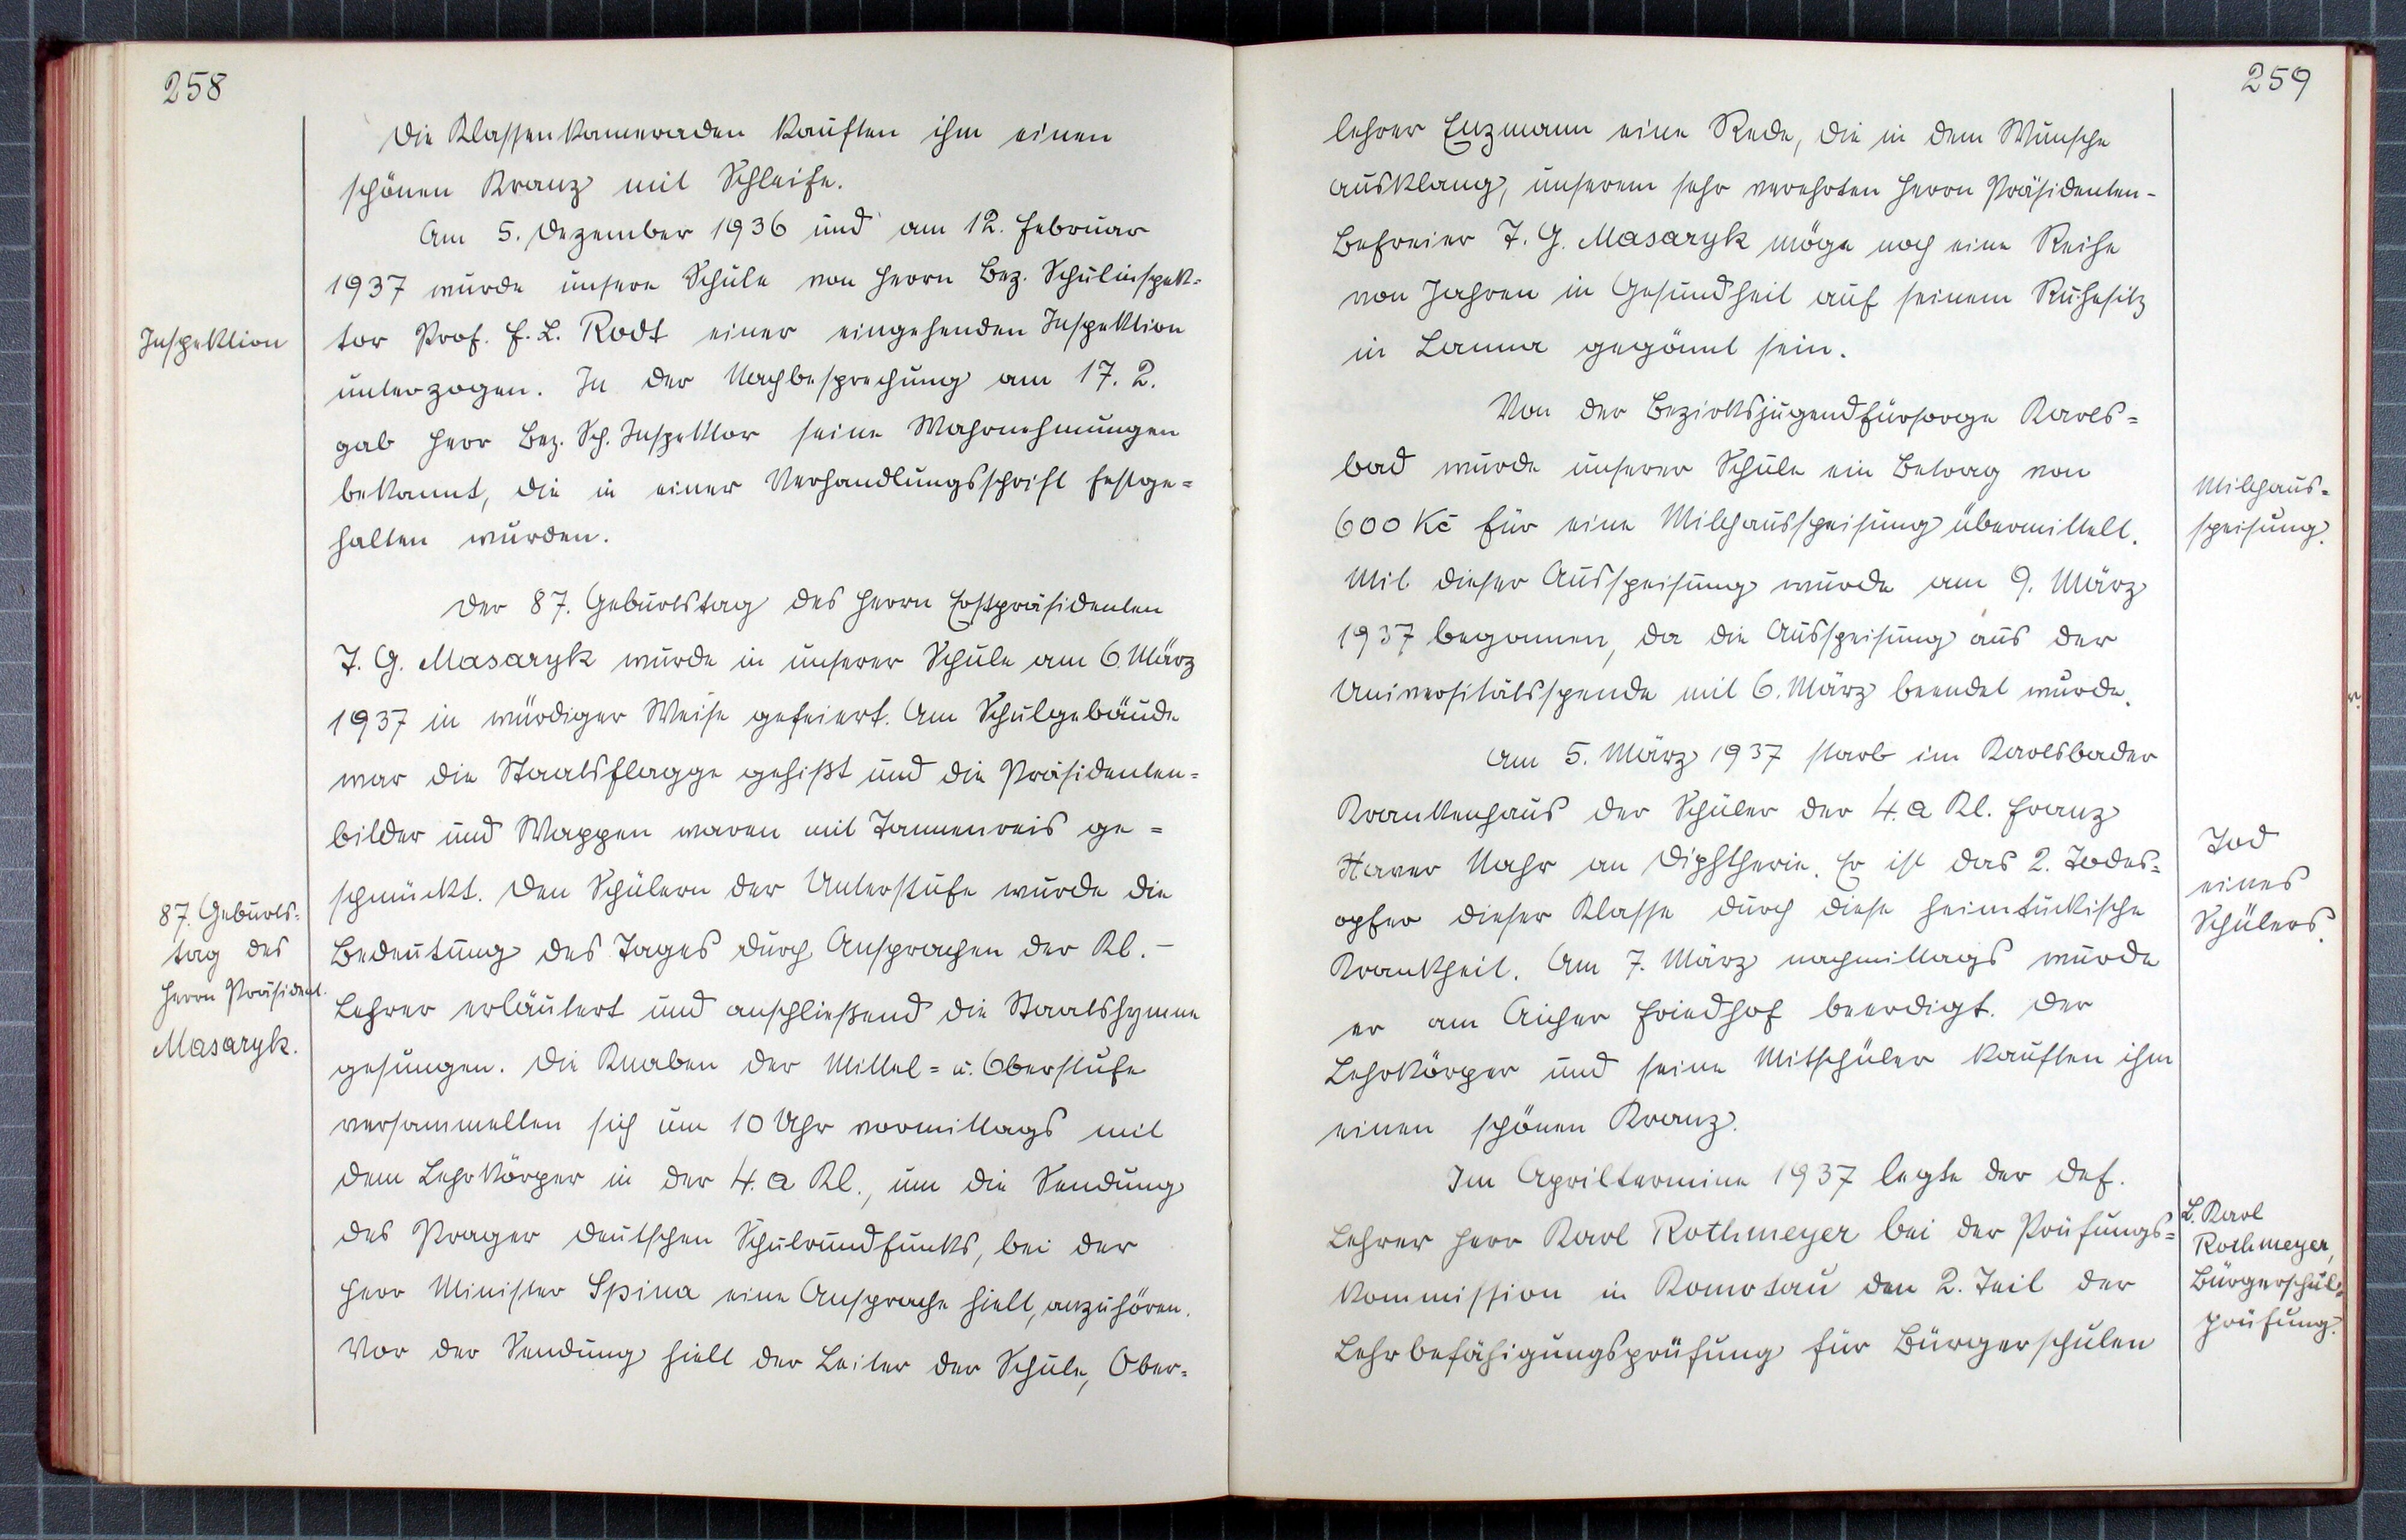 258
Die Klassenkameraden kauften ihm einen
schönen Kranz mit Schleife.
Am 5. Dezember 1936 und am 12. Februar
1937 wurde unsere Schule von Herrn Bez. Schulinspek=
Inspektion
tor Prof. F. L. Rodt einer eingehenden Inspektion
unterzogen. In der Nachbesprechung am 17. 2.
gab Herr Bez. Sch. Inspektor seine Wahrnehmungen
bekannt, die in einer Verhandlungsschrift festge=
halten wurden.
Der 87. Geburtstag des Herrn Erstpräsidenten
T. G. Masaryk wurde in unserer Schule am 6. März
1937 in würdiger Weise gefeiert. Am Schulgebäude
war die Staatsflagge gehißt und die Präsidenten=
bilder und Wappen waren mit Tannenreis ge=
schmückt. Den Schülern der Unterstufe wurde die
87. Geburts=
tag des
Herrn Präsident.
Masaryk.
Bedeutung des Tages durch Ansprachen der Kl.-
Lehrer erläutert und anschließend die Staatshymne
gesungen. Die Knaben der Mittel= u. Oberstufe
versammelten sich um 10 Uhr vormittags mit
dem Lehrkörper in der 4. a Kl., um die Sendung
des Prager deutschen Schulrundfunks, bei der
Herr Minister Spina eine Ansprache hielt, anzuhören.
Vor der Sendung hielt der Leiter der Schule, Ober=
259
lehrer Enzmann eine Rede, die in dem Wunsche
ausklang, unserem sehr verehrten Herrn Präsidenten-
Befreier T. G. Masaryk möge noch eine Reihe
von Jahren in Gesundheit auf seinem Ruhesitz
in Lanna gegönnt sein.
Von der Bezirksjugendfürsorge Karls=
bad wurde unserer Schule ein Betrag von
600 Kč für eine Milchausspeisung übermittelt.
Milchaus=
speisung.
Mit dieser Ausspeisung wurde am 9. März
1937 begonnen, da die Ausspeisung aus der
Universitätsspende mit 6. März beendet wurde.
Am 5. März 1937 starb im Karlsbader
Krankenhaus der Schüler der 4. a Kl. Franz
Xaver Nahr an Diphtherie. Er ist das 2. Todes=
opfer dieser Klasse durch diese heimtückische
Tod
eines
Schülers.
Krankheit. Am 7. März nachmittags wurde
er am Aicher Friedhof beerdigt. Der
Lehrkörper und seine Mitschüler kauften ihm
einen schönen Kranz.
Im Apriltermine 1937 legte der def.
Lehrer Herr Karl Rothmeyer bei der Prüfungs=
kommission in Komotau den 2. Teil der
Lehrbefähigungsprüfung für Bürgerschulen
L. Karl
Rothmeyer,
Bürgerschul=
prüfung.